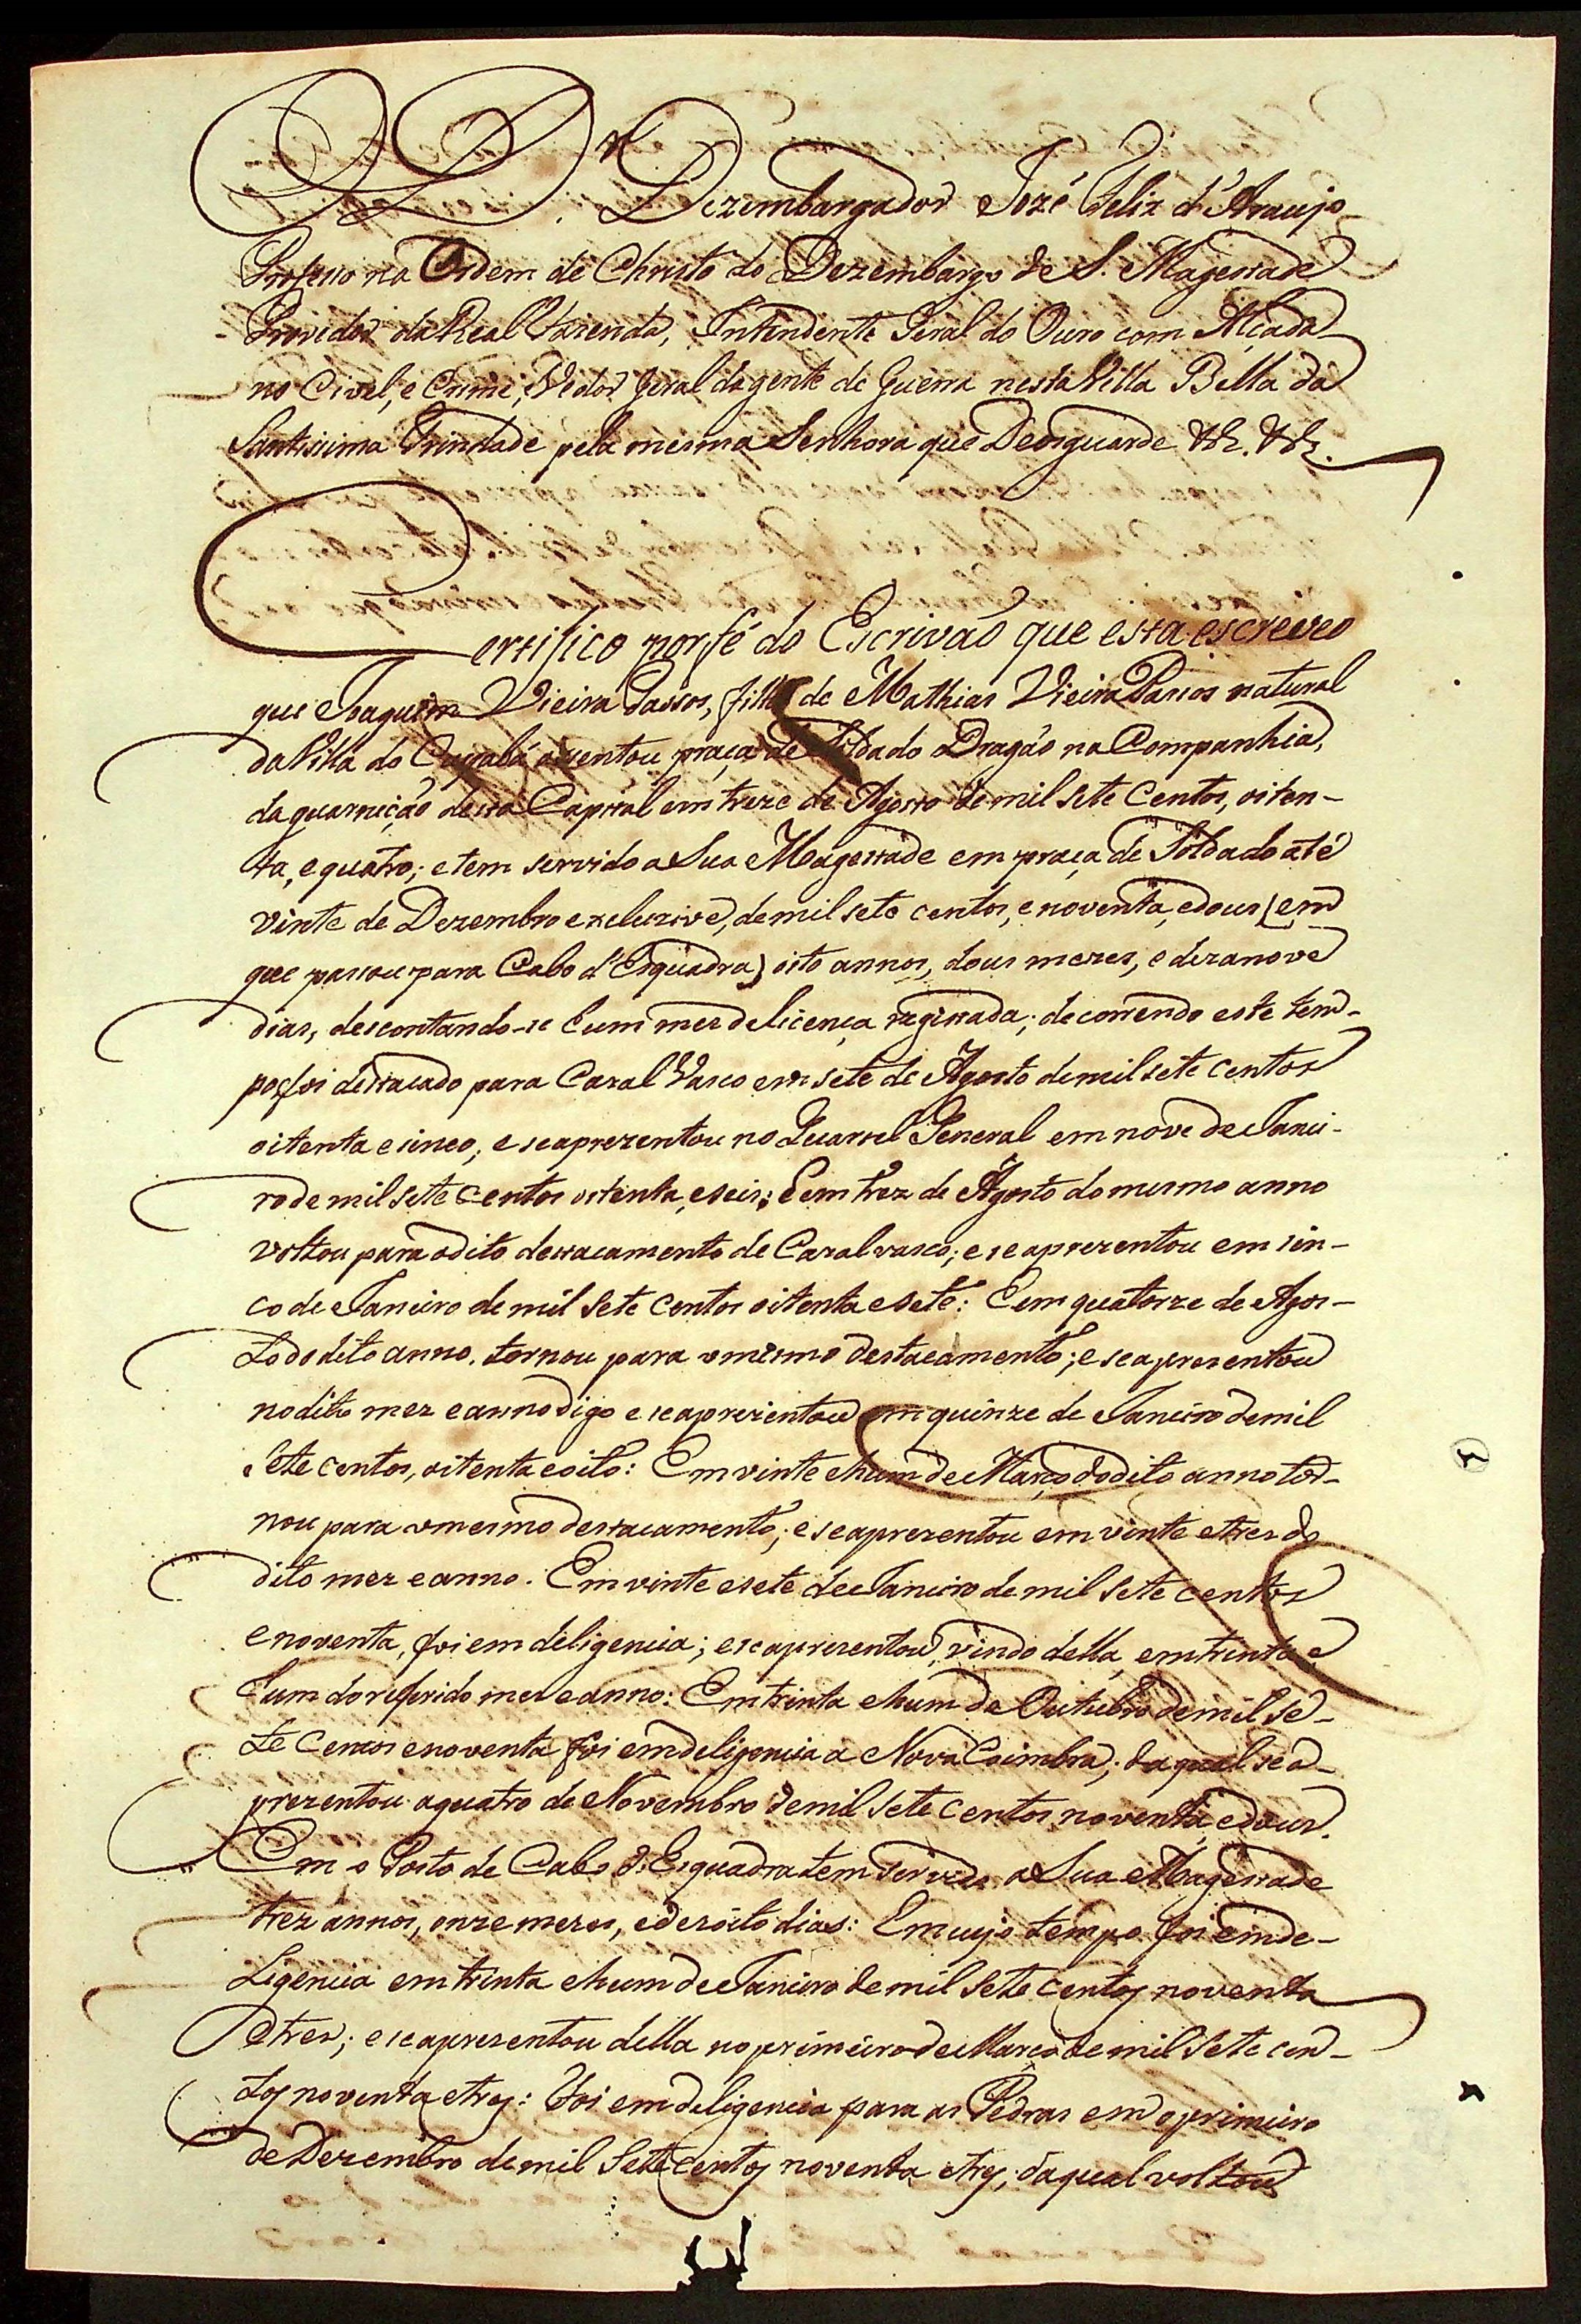 Dr. Dezembargador Jozé Feliz d'Araujo
Professo na Ordem de Christo do Dezembargo de S. Magestade
Provedor da Real Fazenda, Intendente Geral do Ouro com Alçada
no Civel, e Crime, Vedor geral da gente de guerra nesta Villa Bella da
Santissima Trindade pela mesma Senhora que Deos guarde &&. &&.
Certifico por fé do Escrivão que esta escreveo
que Joaquim Vieira Passos, filho de Mathias Vieira Passos natural
da Villa do Cuyabá assentou praça de Soldado Dragão na Companhia,
da guarnição desta Capital em treze de Agosto de mil sete centos, oiten-
ta, e quatro; e tem servido a Sua Magestade em praça de Soldado até
vinte de Dezembro excluzive, de mil sete centos, e noventa, e dous (em
que passou para Cabo d'Esquadra) oito annos, dous mezes, e dezanove
dias, descontando-se hum mez de licença registada; decorrendo este tem-
po foi destacado para Cazal Vasco em sete de Agosto de mil sete centos
oitenta e sinco, e se aprezentou no Quartel General em nove de Janei-
ro de mil sete centos oitenta, e seis; E em trez de Agosto do mesmo anno
voltou para o dito destacamento de Cazalvasco; e se aprezentou em sin-
co de Janeiro de mil sete centos oitenta e sete: E em quatorze de Agos-
to do dito anno. tornou para o mesmo destacamento; e se aprezentou
no dito mez e anno digo e se aprezentou em quinze de Janeiro de mil
sete centos, oitenta e oito: Em vinte e hum de Março do dito anno tor-
nou para o mesmo destacamento; e se aprezentou em vinte e tres do
dito mez e anno. Em vinte e sete de Janeiro de mil sete centos
e noventa, foi em diligencia; e se aprezentou, vindo della, em trinta e
hum do referido mez e anno: Em trinta e hum de Outubro de mil se-
te centos e noventa foi em deligencia a Nova Coimbra; da qual se a-
prezentou a quatro de Novembro de mil sete centos noventa, e dous.
Em o Posto de Cabo d'Esquadra tem servido a Sua Magestade
trez annos, onze mezes, e dezoito dias: Em cujo tempo foi em de-
ligencia em trinta e hum de Janeiro de mil sete centos noventa
e tres; e se aprezentou della no primeiro de Março de mil sete cen-
tos noventa e tres: Foi em deligencia para as Pedras em o primeiro
de Dezembro de mil sete centos noventa e tres; da qual voltou